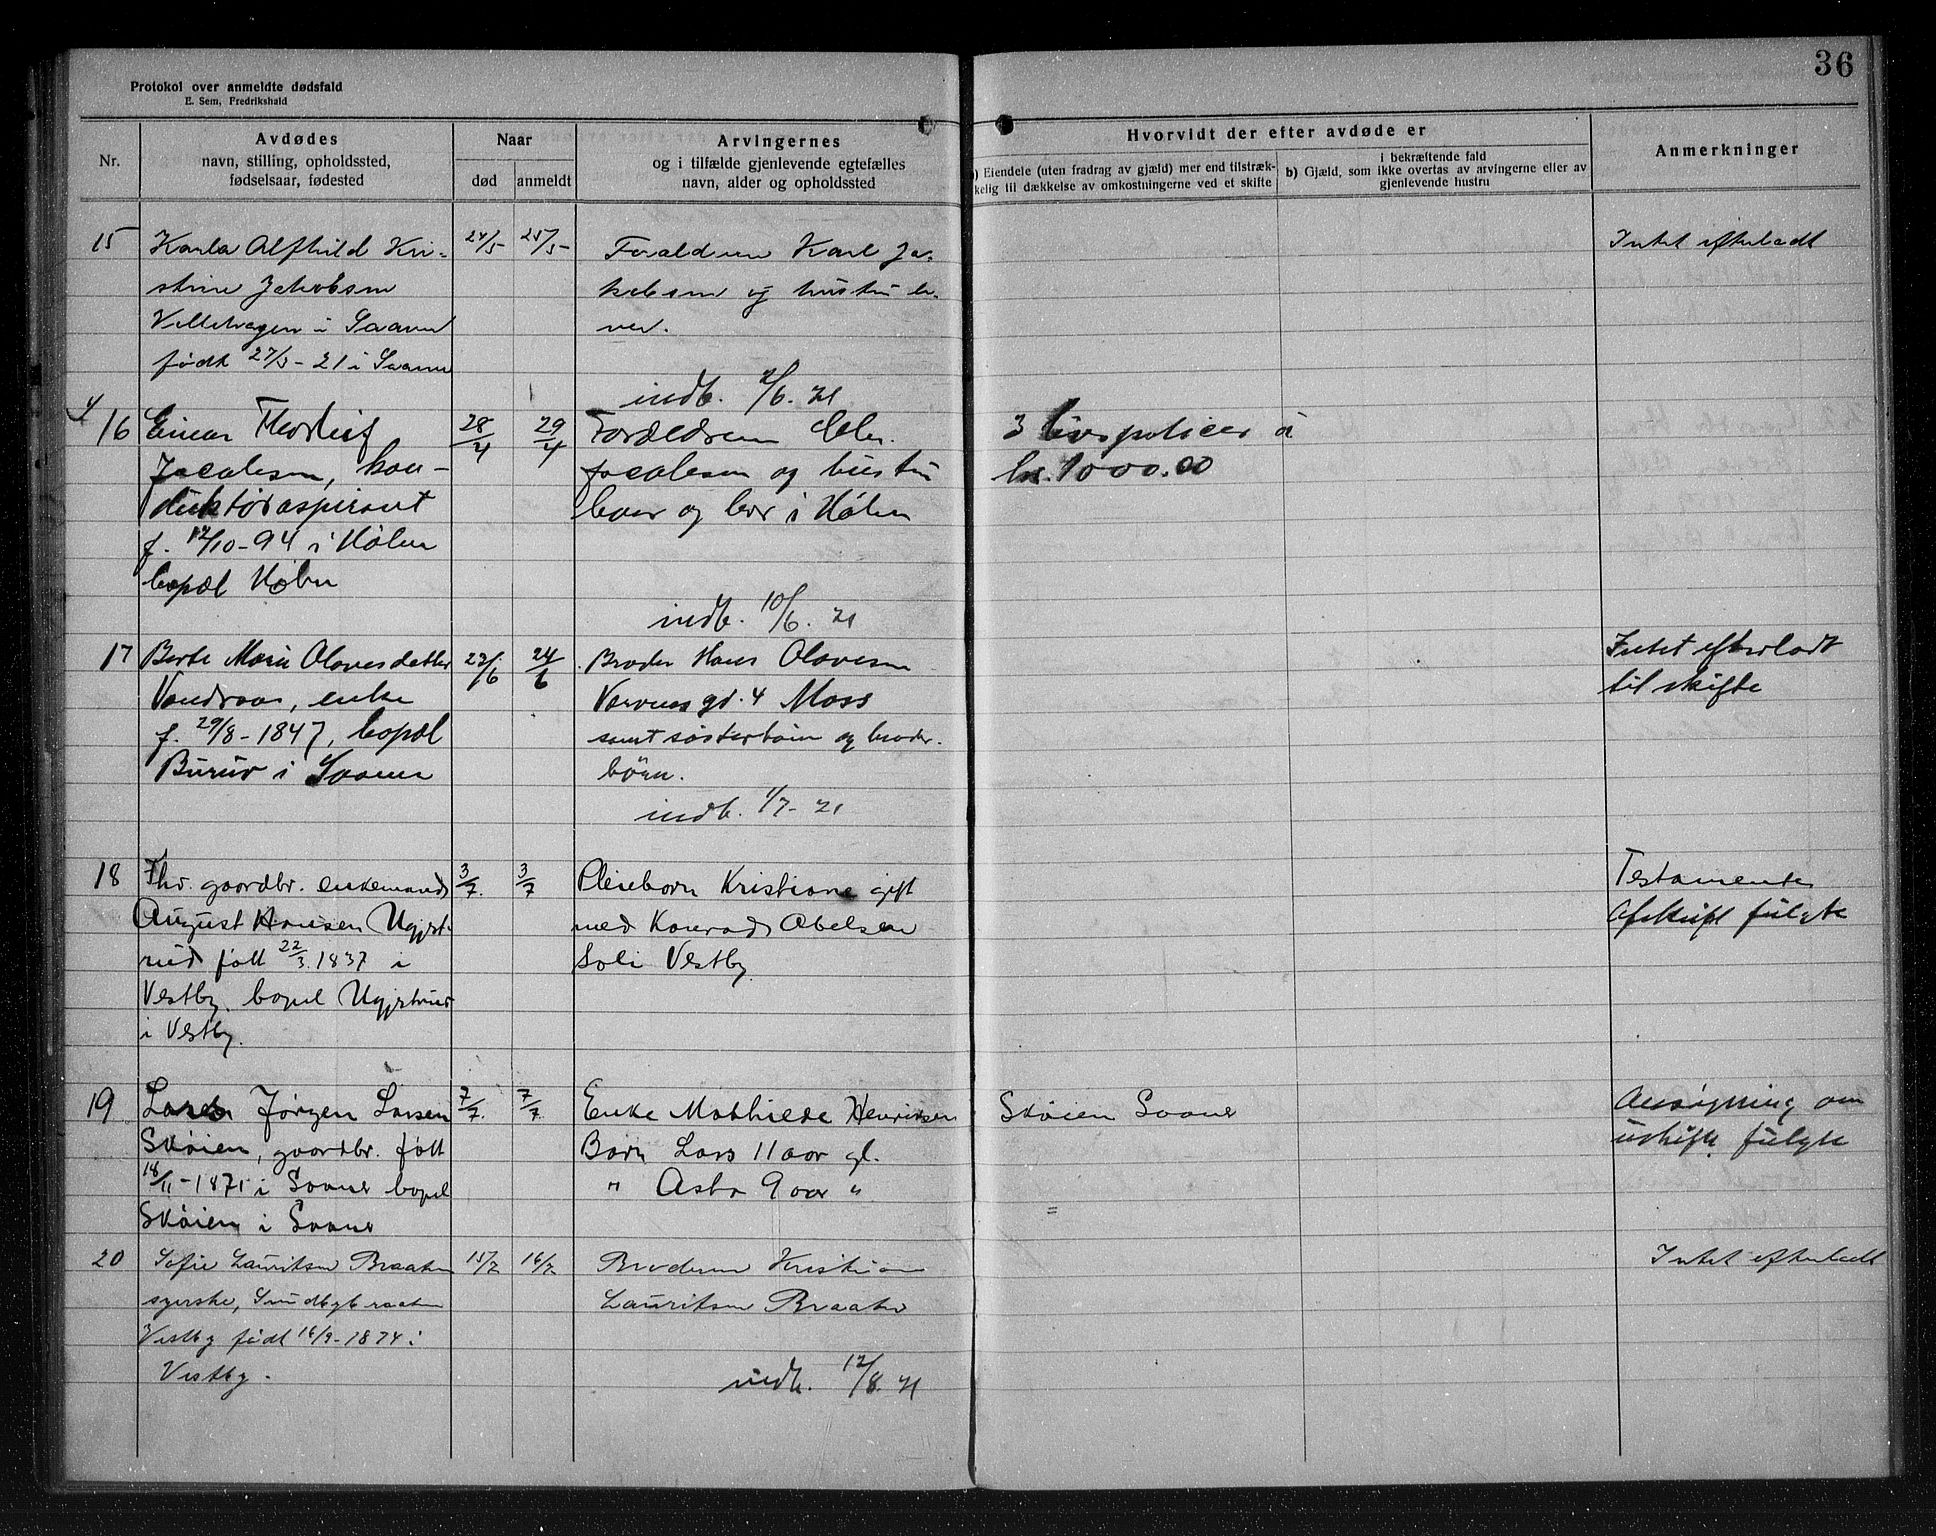 36
Protokol over anmeldte dødsfald
E. Sem, Fredrikshald
Nr.
Avdødes
navn, stilling, opholdssted,
fødselsaar, fødested
Naar
død
anmeldt
Arvingernes
og i tilfælde gjenlevende egtefælles
navn, alder og opholdssted
Hvorvidt der efter avdøde er
a) Eiendele (uten fradrag av gjæld) mer end tilstræk-
kelig til dækkelse av omkostningerne ved et skifte
i bekræftende fald
b) Gjæld, som ikke overtas av arvingerne eller av
gjenlevende hustru
Anmerkninger
15
Karla Alfhild Kri-
stine Jakobsen
i Saaner
født 27/3-21 i Saaner
24/5
25/5
Forældrene Karl Ja-
kobsen og hustru le-
ver.
indb. 2/6. 21
Intet efterladt
16
Einar Thorleif
Jacobsen, kon-
duktøraspirant
f. 12/10-94 i Hølen
bopæl Hølen
28/4
29/4
Forældrene
Jacobsen og hustru
lever og bor i Hølen
indb. 10/6. 21
3 livspolicer à
kr. 1000.00
17
Berte Marie Olavesdatter
Vandraas, enke
f. 29/8-1847, bopæl
i Saaner
23/6
24/6
Broder Hans Olavesen
gd. 4 Moss
samt søsterbørn og broder-
børn.
indb. 1/7-21
Intet efterladt
til skifte
18
Fhv. gaardbr. enkemand
August Hansen Ugjest-
rud født 22/3.1837 i
Vestby. bopel Ugjestrud
i Vestby.
3/7.
3/7
Pleiebarn Kristiane gift
med Konrad Abelsen
Soli Vestby.
Testamente
Afskrift fulgte
19
Lars Jørgen Larsen
Skøien, gaardbr. født
18/11-1875 i Saaner bopel
Skøien i Saaner
7/7.
7/7.
Enke Mathilde Henriksen
Børn Lars 11 aar gl.
" Asta 9 aar "
Skøien Saaner
=
Ansøgning om
uskifte fulgte
20
Sofie Lauritsen Braaten
syerske, Sundbybraaten
Vestby født 16/9-1874 i
Vestby.
15/7
16/7
Broderen Kristian
Lauritsen Braaten
indb. 12/8. 21
Intet efterladt